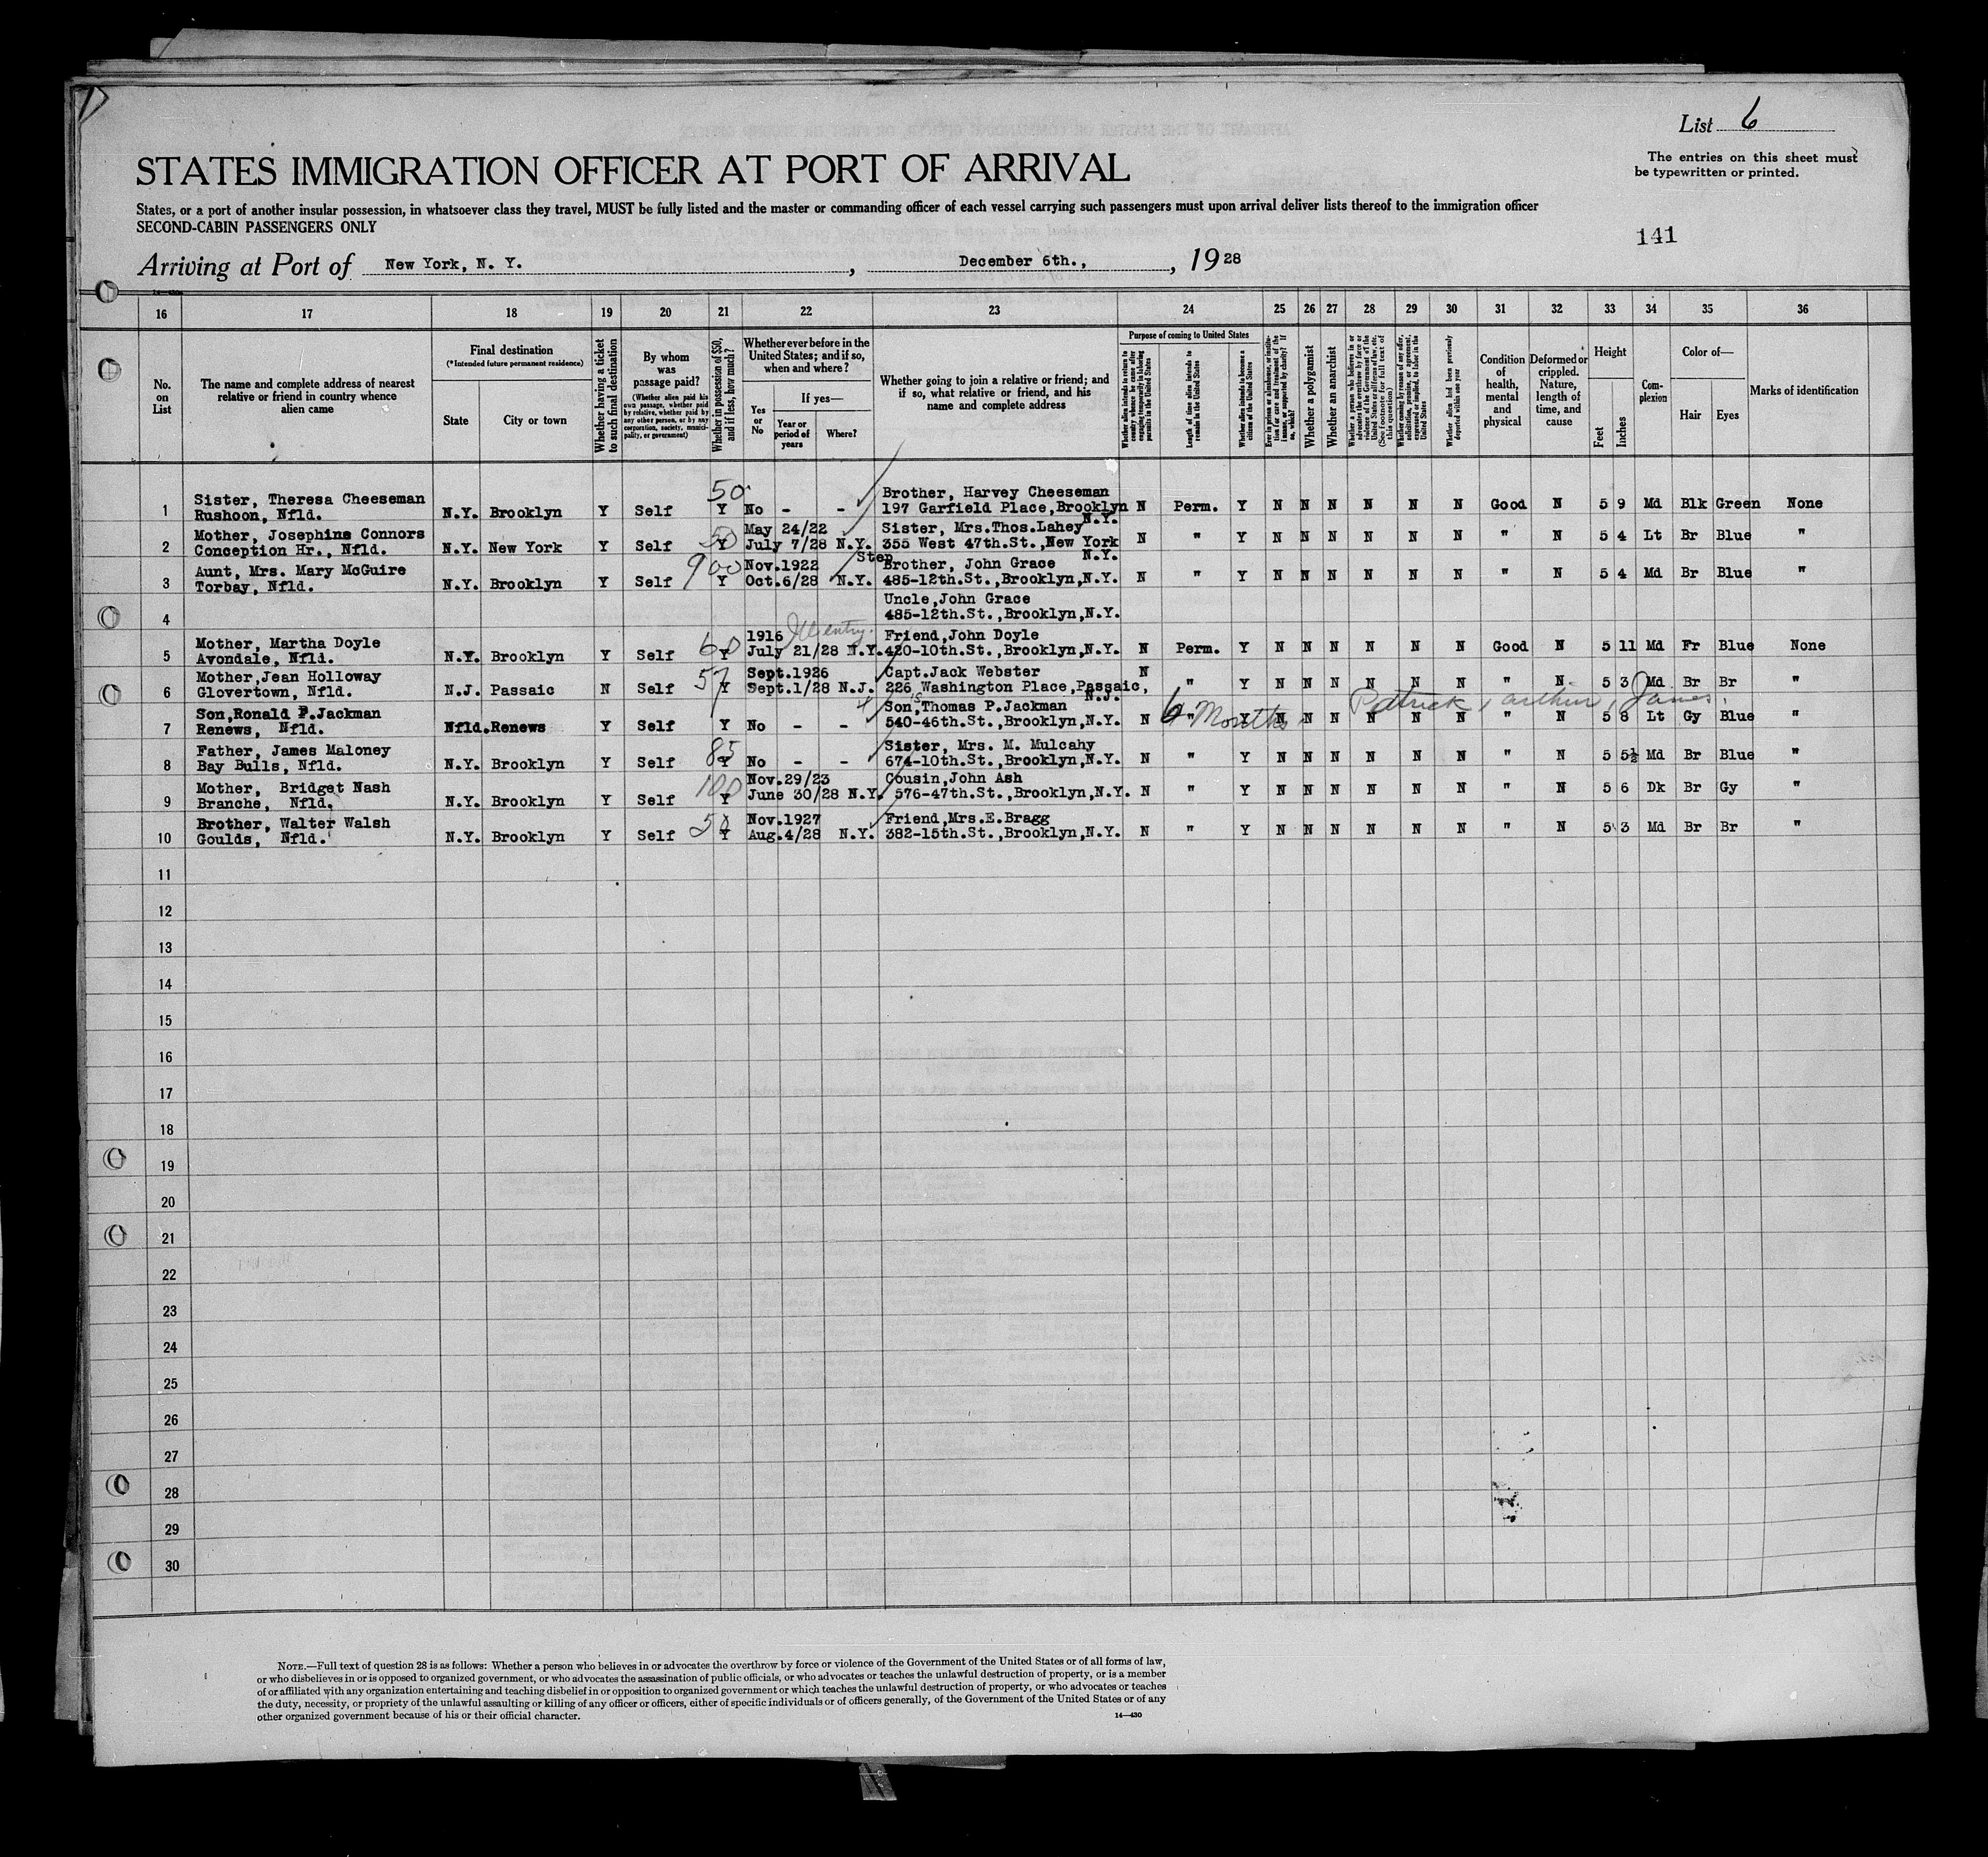 List 6
The entries on this sheet must
be typewritten or printed.
STATES IMMIGRATION OFFICER AT PORT OF ARRIVAL
States, or a port of another insular possession, in whatsoever class they travel, MUST be fully listed and the master or commanding officer of each vessel carrying such passengers must upon arrival deliver lists thereof to the immigration officer
SECOND-CABIN PASSENGERS ONLY
141
Arriving at Port of New York, N. Y., December 6th., , 19 28
16 17 18 19 20 21 22 23 24 25 26 27 28 29 30 31 32 33 34 35 36
No. on List
The name and complete address of nearest relative or friend in country whence alien came
Final destination
(*Intended future permanent residence)
State
City or town
Whether having a ticket to such final destination
By whom was passage paid?
(Whether alien paid his own passage, whether paid by relative, whether paid by any other person, or by any corporation, society, municipality, or government)
Whether in possession of $50, and if less, how much?
Whether ever before in the United States; and if so, when and where?
Yes or No
If yes—
Year or period of years
Where?
Whether going to join a relative or friend; and if so, what relative or friend, and his name and complete address
Purpose of coming to United States
Whether alien intends to return to country whence he came after engaging temporarily in laboring pursuits in the United States
Length of time alien intends to remain in the United States
Whether alien intends to become a citizen of the United States
Ever in prison or almshouse, or institution for care and treatment of the insane, or supported by charity? If so, which?
Whether a polygamist
Whether an anarchist
Whether a person who believes in or advocates the overthrow by force or violence of the Government of the United States or all forms of law, etc. (See footnote for full text of this question)
Whether coming by reason of any offer, solicitation, promise, or agreement, expressed or implied, to labor in the United States
Whether alien had been previously deported within one year
Condition of health, mental and physical
Deformed or crippled. Nature, length of time, and cause
Height
Feet
Inches
Complexion
Color of—
Hair
Eyes
Marks of identification
1 Sister, Theresa Cheeseman Rushoon, Nfld. N.Y. Brooklyn Y Self 50 Y No - - Brother, Harvey Cheeseman 197 Garfield Place,Brooklyn N.Y. N Perm. Y N N N N N N Good N 5 9 Md Blk Green None
2 Mother, Josephine Connors Conception Hr., Nfld. N.Y. New York Y Self 50 Y May 24/22 July 7/28 N.Y. Sister, Mrs.Thos.Lahey 355 West 47th.St.,New York N.Y. N " Y N N N N N N " N 5 4 Lt Br Blue "
3 Aunt, Mrs. Mary McGuire Torbay, Nfld. N.Y. Brooklyn Y Self 900 Y Nov.1922 Oct.6/28 N.Y. Step Brother, John Grace 485-12th.St.,Brooklyn,N.Y. N " Y N N N N N N " N 5 4 Md Br Blue "
4 Uncle,John Grace 485-12th.St.,Brooklyn,N.Y.
5 Mother, Martha Doyle Avondale, Nfld. N.Y. Brooklyn Y Self 60 Y 1916 July 21/28 N.Y. Friend,John Doyle 420-10th.St.,Brooklyn,N.Y. N Perm. Y N N N N N N Good N 5 11 Md Fr Blue None
6 Mother,Jean Holloway Glovertown, Nfld. N.J. Passaic N Self 57 Y Sept.1926 Sept.1/28 N.J. Capt.Jack Webster 226 Washington Place,Passaic, N.J. N " Y N N N N N N " N 5 3 Md Br Br "
Patrick, Arthur, James
7 Son,Ronald P.Jackman Renews, Nfld. Nfld.Renews Y Self Y No - - Son,Thomas P.Jackman 540-46th.St.,Brooklyn,N.Y. N " 6 Months Y N N N N N N " N 5 8 Lt Gy Blue "
8 Father, James Maloney Bay Bulls, Nfld. N.Y. Brooklyn Y Self 85 Y No - - Sister, Mrs. M. Mulcahy 674-10th.St.,Brooklyn,N.Y. N " Y N N N N N N " N 5 5½ Md Br Blue "
9 Mother, Bridget Nash Branche, Nfld. N.Y. Brooklyn Y Self 100 Y Nov.29/23 June 30/28 N.Y. Cousin,John Ash 576-47th.St.,Brooklyn,N.Y. N " Y N N N N N N " N 5 6 Dk Br Gy "
10 Brother, Walter Walsh Goulds, Nfld. N.Y. Brooklyn Y Self 50 Y Nov.1927 Aug.4/28 N.Y. Friend,Mrs.E.Bragg 382-15th.St.,Brooklyn,N.Y. N " Y N N N N N N " N 5 3 Md Br Br "
11
12
13
14
15
16
17
18
19
20
21
22
23
24
25
26
27
28
29
30
NOTE.—Full text of question 28 is as follows: Whether a person who believes in or advocates the overthrow by force or violence of the Government of the United States or of all forms of law,
or who disbelieves in or is opposed to organized government, or who advocates the assassination of public officials, or who advocates or teaches the unlawful destruction of property, or is a member
of or affiliated with any organization entertaining and teaching disbelief in or opposition to organized government or which teaches the unlawful destruction of property, or who advocates or teaches
the duty, necessity, or propriety of the unlawful assaulting or killing of any officer or officers, either of specific individuals or of officers generally, of the Government of the United States or of any
other organized government because of his or their official character.
14—430